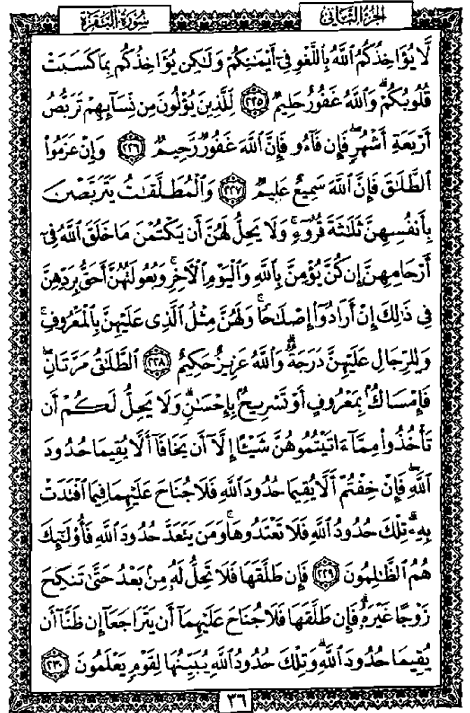 الجزء الثاني
سورة البقرة
لَّا يُؤَاخِذُكُمُ ٱللَّهُ بِٱللَّغْوِ فِىٓ أَيْمَـٰنِكُمْ وَلَـٰكِن يُؤَاخِذُكُم بِمَا كَسَبَتْ
قُلُوبُكُمْ ۗ وَٱللَّهُ غَفُورٌ حَلِيمٌ ﴿٢٢٥﴾ لِّلَّذِينَ يُؤْلُونَ مِن نِّسَآئِهِمْ تَرَبُّصُ
أَرْبَعَةِ أَشْهُرٍ ۖ فَإِن فَآءُو فَإِنَّ ٱللَّهَ غَفُورٌ رَّحِيمٌ ﴿٢٢٦﴾ وَإِنْ عَزَمُوا۟
ٱلطَّلَـٰقَ فَإِنَّ ٱللَّهَ سَمِيعٌ عَلِيمٌ ﴿٢٢٧﴾ وَٱلْمُطَلَّقَـٰتُ يَتَرَبَّصْنَ
بِأَنفُسِهِنَّ ثَلَـٰثَةَ قُرُوٓءٍ ۚ وَلَا يَحِلُّ لَهُنَّ أَن يَكْتُمْنَ مَا خَلَقَ ٱللَّهُ فِىٓ
أَرْحَامِهِنَّ إِن كُنَّ يُؤْمِنَّ بِٱللَّهِ وَٱلْيَوْمِ ٱلْـَٔاخِرِ ۚ وَبُعُولَتُهُنَّ أَحَقُّ بِرَدِّهِنَّ
فِى ذَٰلِكَ إِنْ أَرَادُوٓا۟ إِصْلَـٰحًا ۚ وَلَهُنَّ مِثْلُ ٱلَّذِى عَلَيْهِنَّ بِٱلْمَعْرُوفِ ۚ
وَلِلرِّجَالِ عَلَيْهِنَّ دَرَجَةٌ ۗ وَٱللَّهُ عَزِيزٌ حَكِيمٌ ﴿٢٢٨﴾ ٱلطَّلَـٰقُ مَرَّتَانِ ۖ
فَإِمْسَاكٌۢ بِمَعْرُوفٍ أَوْ تَسْرِيحٌۢ بِإِحْسَـٰنٍ ۗ وَلَا يَحِلُّ لَكُمْ أَن
تَأْخُذُوا۟ مِمَّآ ءَاتَيْتُمُوهُنَّ شَيْـًٔا إِلَّآ أَن يَخَافَآ أَلَّا يُقِيمَا حُدُودَ
ٱللَّهِ ۖ فَإِنْ خِفْتُمْ أَلَّا يُقِيمَا حُدُودَ ٱللَّهِ فَلَا جُنَاحَ عَلَيْهِمَا فِيمَا ٱفْتَدَتْ
بِهِۦ ۗ تِلْكَ حُدُودُ ٱللَّهِ فَلَا تَعْتَدُوهَا ۚ وَمَن يَتَعَدَّ حُدُودَ ٱللَّهِ فَأُو۟لَـٰٓئِكَ
هُمُ ٱلظَّـٰلِمُونَ ﴿٢٢٩﴾ فَإِن طَلَّقَهَا فَلَا تَحِلُّ لَهُۥ مِنۢ بَعْدُ حَتَّىٰ تَنكِحَ
زَوْجًا غَيْرَهُۥ ۗ فَإِن طَلَّقَهَا فَلَا جُنَاحَ عَلَيْهِمَآ أَن يَتَرَاجَعَآ إِن ظَنَّآ أَن
يُقِيمَا حُدُودَ ٱللَّهِ ۗ وَتِلْكَ حُدُودُ ٱللَّهِ يُبَيِّنُهَا لِقَوْمٍ يَعْلَمُونَ ﴿٢٣٠﴾
٣٦